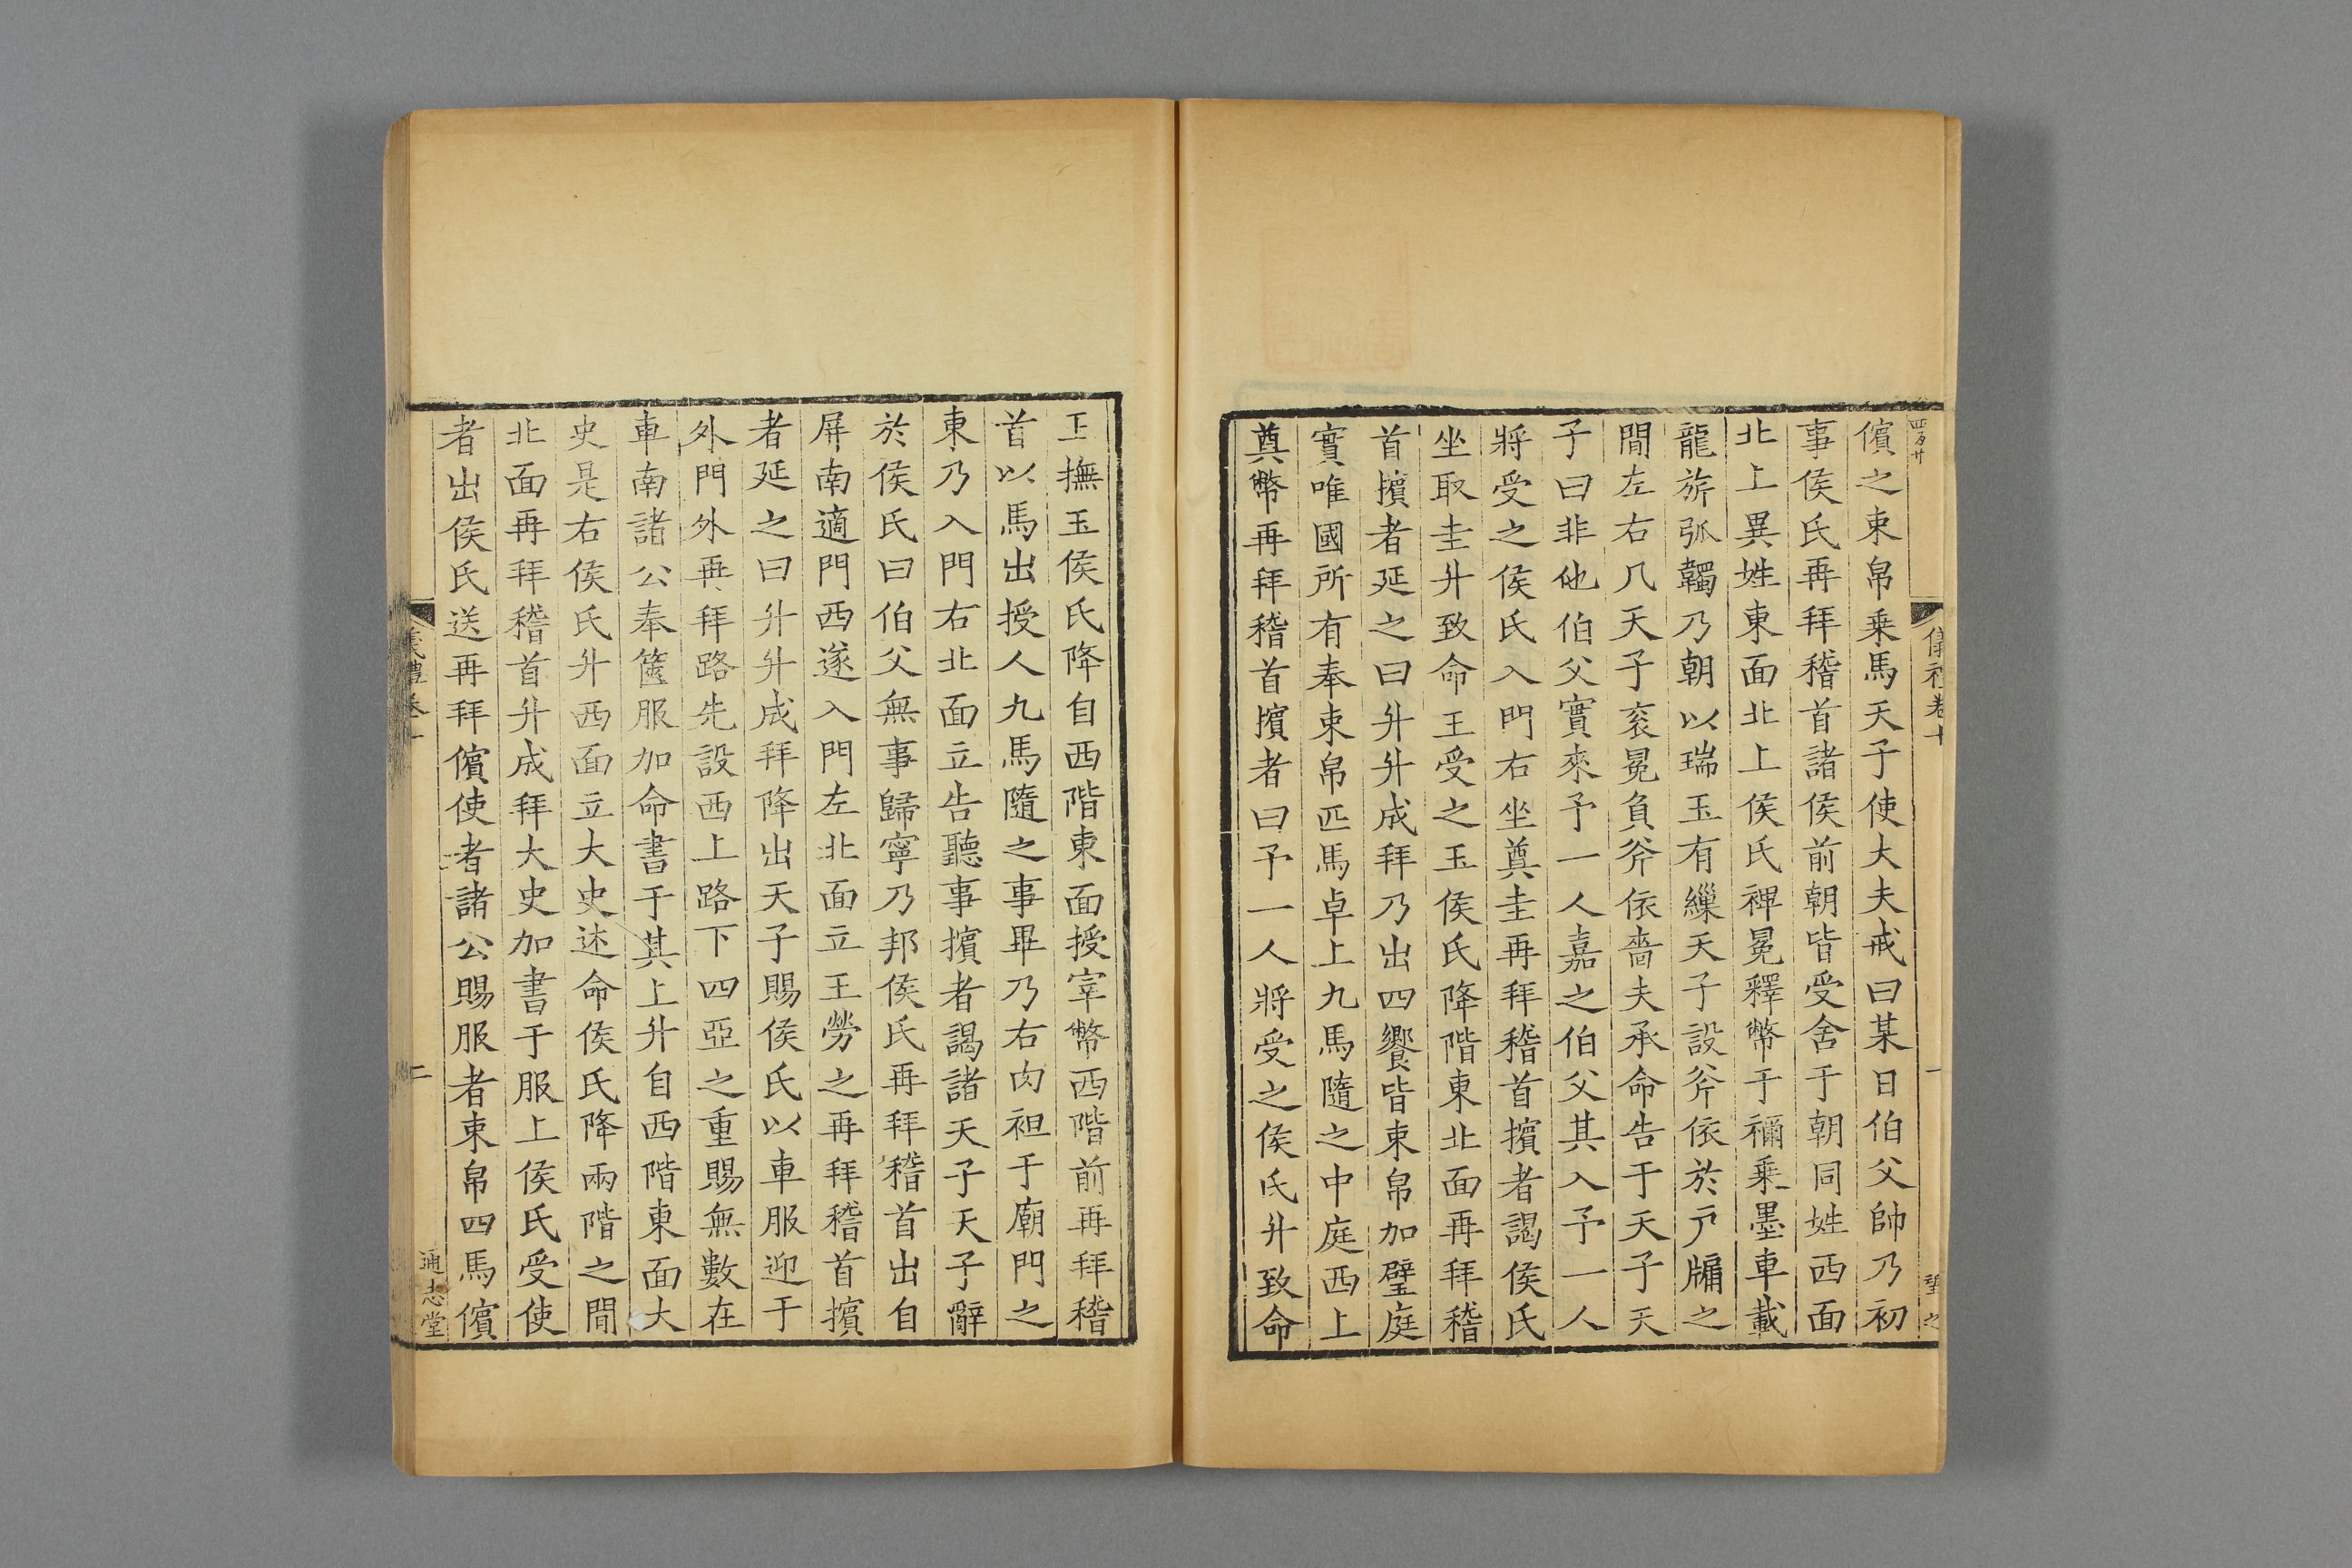 儐之束帛乘馬天子使大夫戒曰某日伯父帥乃初
事侯氏再拜稽首諸侯前朝皆受舍于朝同姓西面
北上異姓東面北上侯氏裨冕釋幣于禰乘墨車載
龍旂弧韣乃朝以瑞玉有繅天子設斧依於戶牖之
間左右几天子衮冕負斧依嗇夫承命告于天子天
子曰非他伯父實來予一人嘉之伯父其入予一人
將受之侯氏入門右坐奠圭再拜稽首擯者謁侯氏
坐取圭升致命王受之玉侯氏降階東北面再拜稽
首擯者延之曰升升成拜乃出四饗皆束帛加璧庭
實唯國所有奉束帛匹馬卓上九馬隨之中庭西上
奠幣再拜稽首擯者曰予一人將受之侯氏升致命
王撫玉侯氏降自西階東面授宰幣西階前再拜稽
首以馬出授人九馬隨之事畢乃右肉袒于廟門之
東乃入門右北面立告聽事擯者謁諸天子天子辭
於侯氏曰伯父無事歸寧乃邦侯氏再拜稽首出自
屏南適門西遂入門左北面立王勞之再拜稽首擯
者延之曰升升成拜降出天子賜侯氏以車服迎于
外門外再拜路先設西上路下四亞之重賜無數在
車南諸公奉篋服加命書于其上升自西階東面大
史是右侯氏升西面立大史述命侯氏降兩階之間
北面再拜稽首升成拜大史加書于服上侯氏受使
者出侯氏送再拜儐使者諸公賜服者束帛四馬儐
二
通志堂